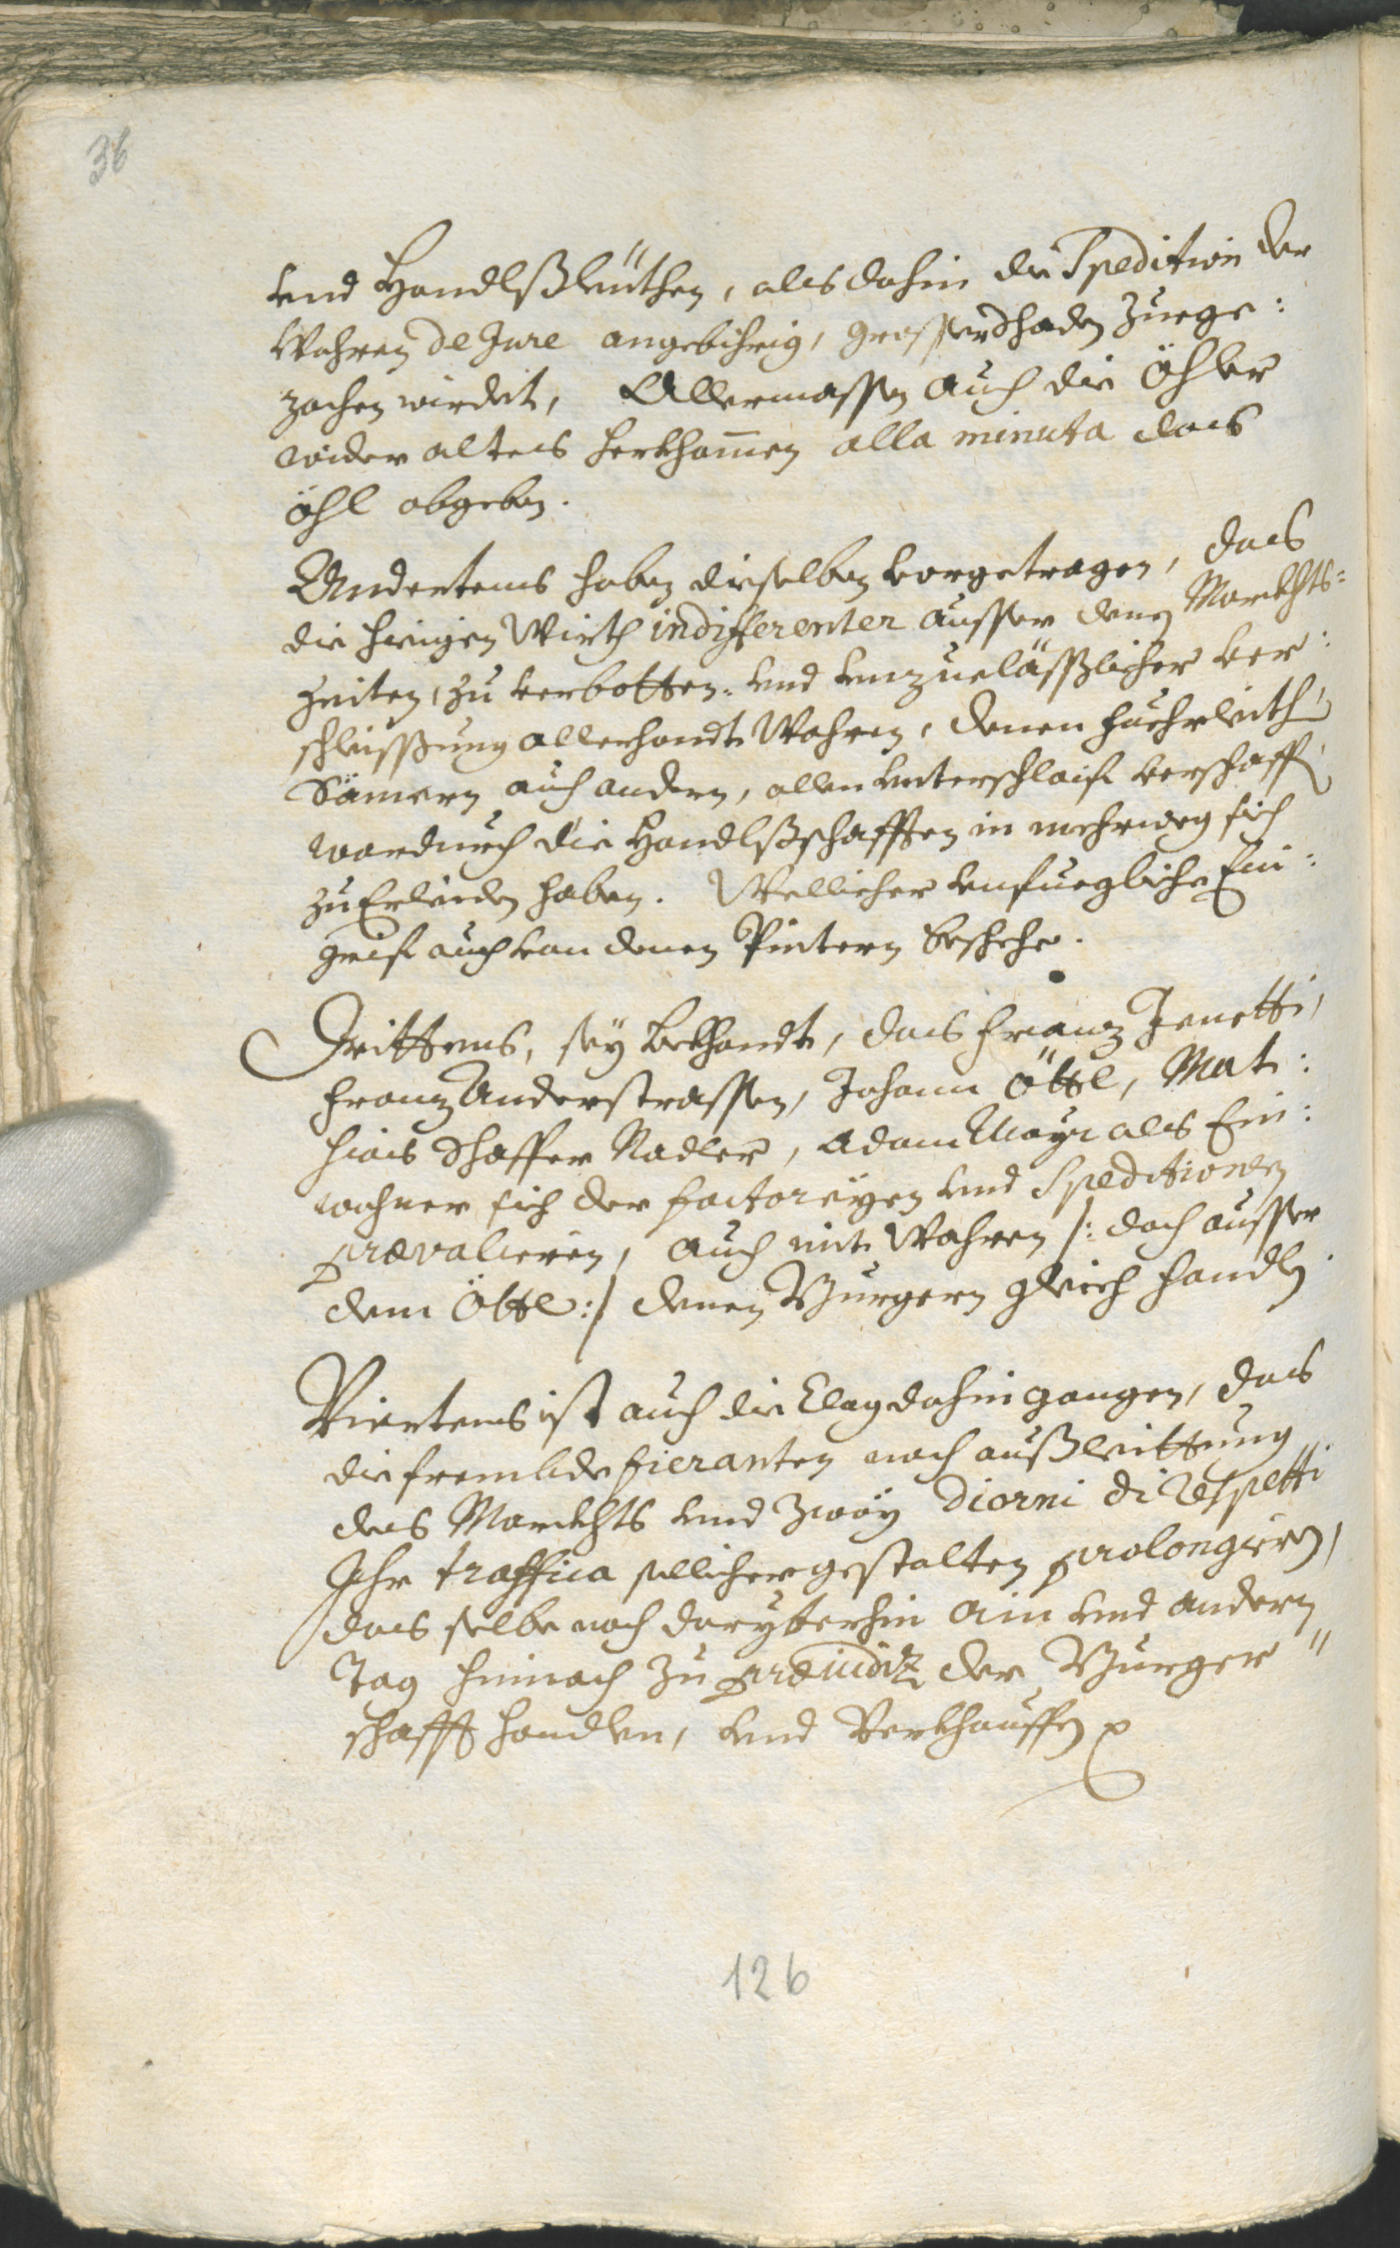 36
und Handlßleüthen, als dahin die Spedition der
Wahren de Jure angebihrig, grosser Schaden zuege:
zochen wirdet, Allermassen auch die Öhler
wider altes herkhom̄en alla minuta das
öhl abgeben.
Andertens haben dieselben vorgetragen, das
die hieigen Würth indifferenter ausser denen Marckhts=
zeiten, zu verbotten: und unzuelässßlicher ver:
schleissßung allerhandt Wahren, denen Fuehrleith,
Sämern auch andern, allen unterschlaif verschaffen,
wardurch die Handlßschafften in mehrweg sich
zu Erleiden haben. Wellicher unfuegliche Ein:
grif auch von denen Pintern beschehe.
Drittens, sey bekhandt, das Franz Jenetti,
Franz Anderstrassen, Johann Öttl, Mat:
hias Schaffer Nadler, Adam Mayr als Ein:
wohner sich der Factoreÿen und Speditionen
prævalieren, auch mit Wahren /: doch ausser
dem Öttl :/ denen Burgern gleich handlen.
Viertens ist auch die Clag dahin gangen, das
die frembde fieranten nach außleittung
des Marckhts und zwaÿ Diorni di respetti
Ihr traffica sollicher gestalten prolongiren,
das selbe noch daryberhin ain und andern
Tag hinnach zu præiudiz der Burger"
schafft handlen, und verkhauffen p
126